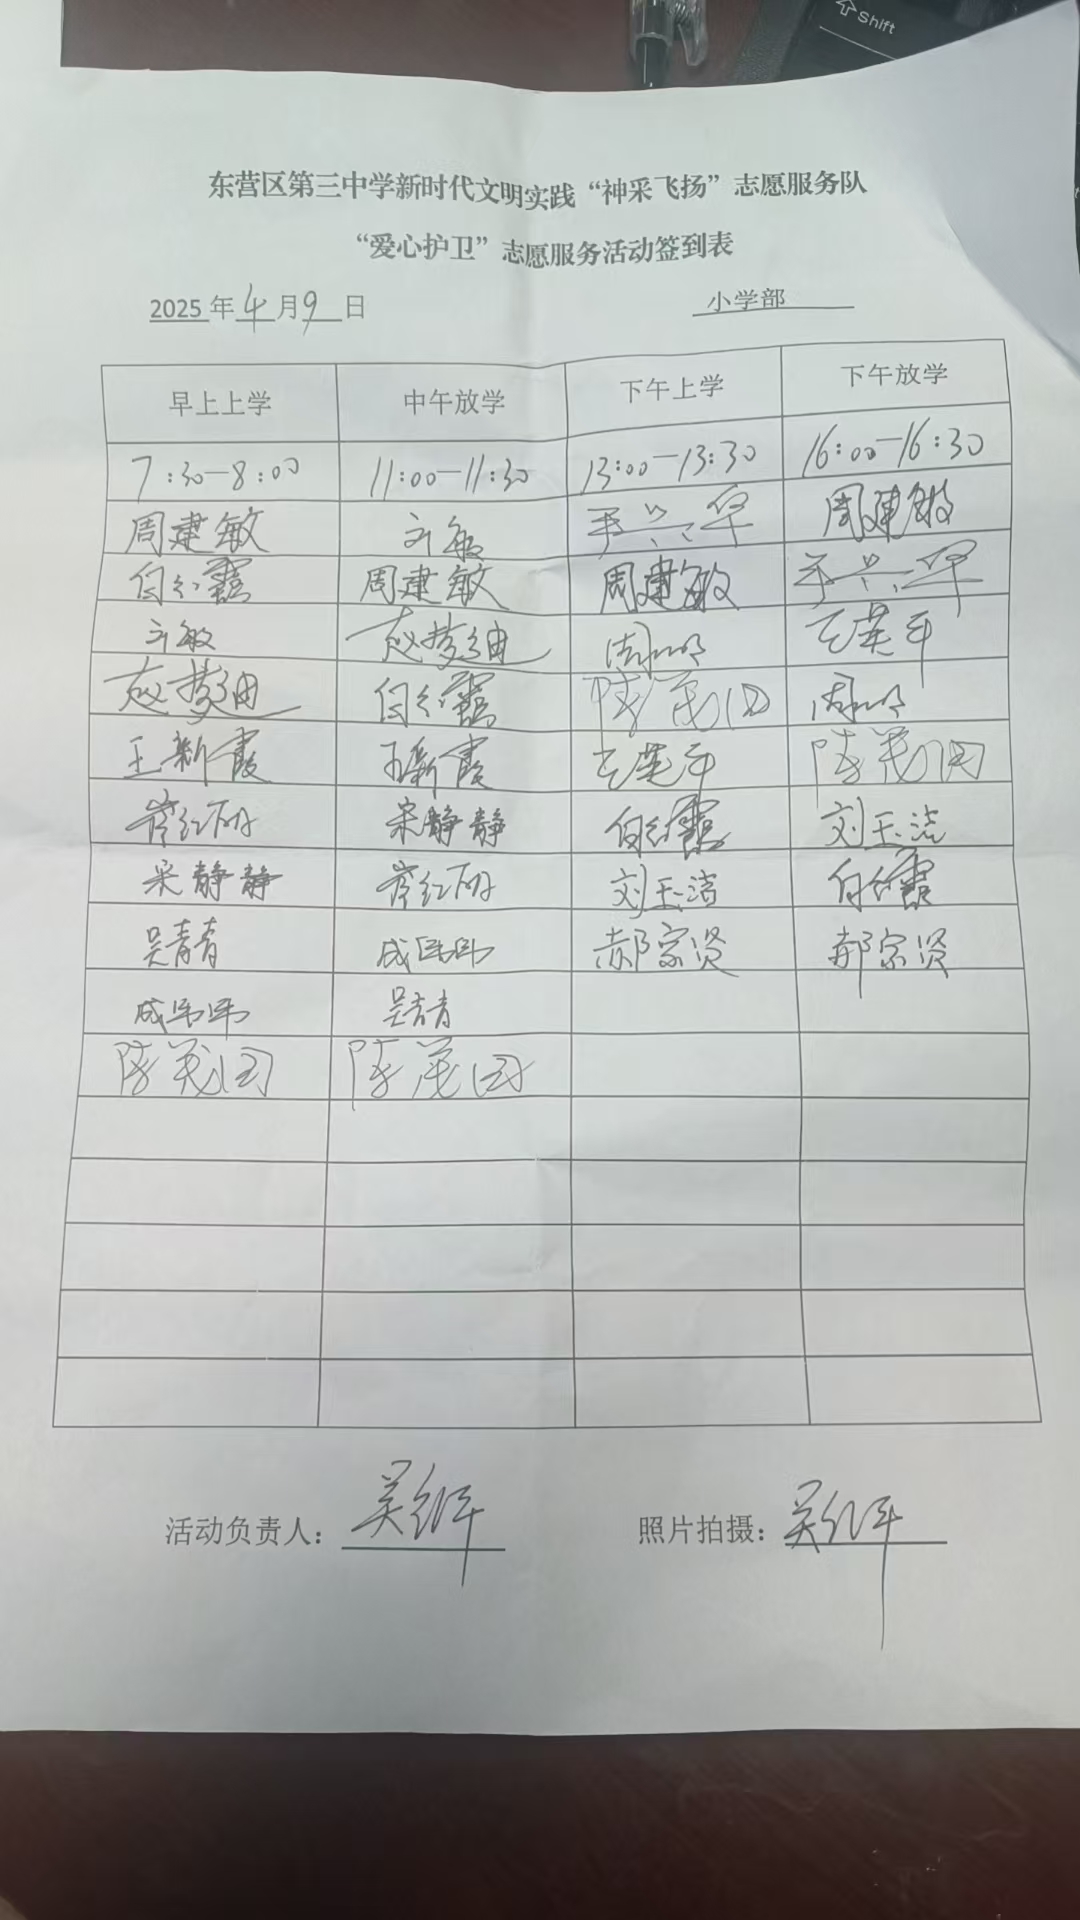 Shift
东营区第三中学新时代文明实践“神采飞扬”志愿服务队
“爱心护卫”志愿服务活动签到表
2025 年 4 月 9 日 小学部
早上上学 中午放学 下午上学 下午放学
7:30-8:00 11:00-11:30 13:00-13:30 16:00-16:30
周建敏 刘敏 兴华 周建敏
白红霞 周建敏 周建敏 兴华
刘敏 赵梦迪 周 王英平
赵梦迪 白红霞 陈茂国 周
王新霞 王新霞 王英平 陈茂国
崔红丽 宋静静 白红霞 刘玉洁
宋静静 崔红丽 刘玉洁 白红霞
吴青青 成 郝宗贤 郝宗贤
成 吴青青
陈茂国 陈茂国
活动负责人： 照片拍摄：